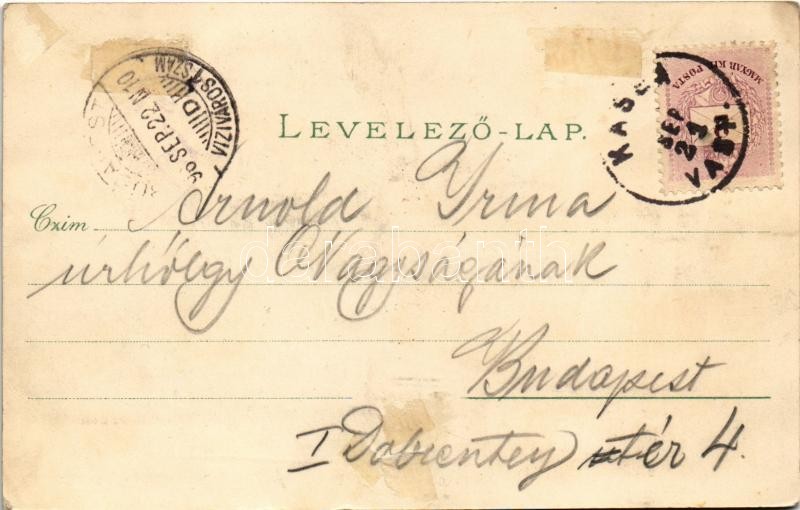 MAGYAR KIR. POSTA
96 SEP. 22
VIZIVÁROS 1 SZÁM
KASSA
SEP
21
LEVELEZŐ-LAP.
Czim Arnold Irma
úrhölgy Őnagyságának
darabanth
Budapest
I Döbrentey tér 4.